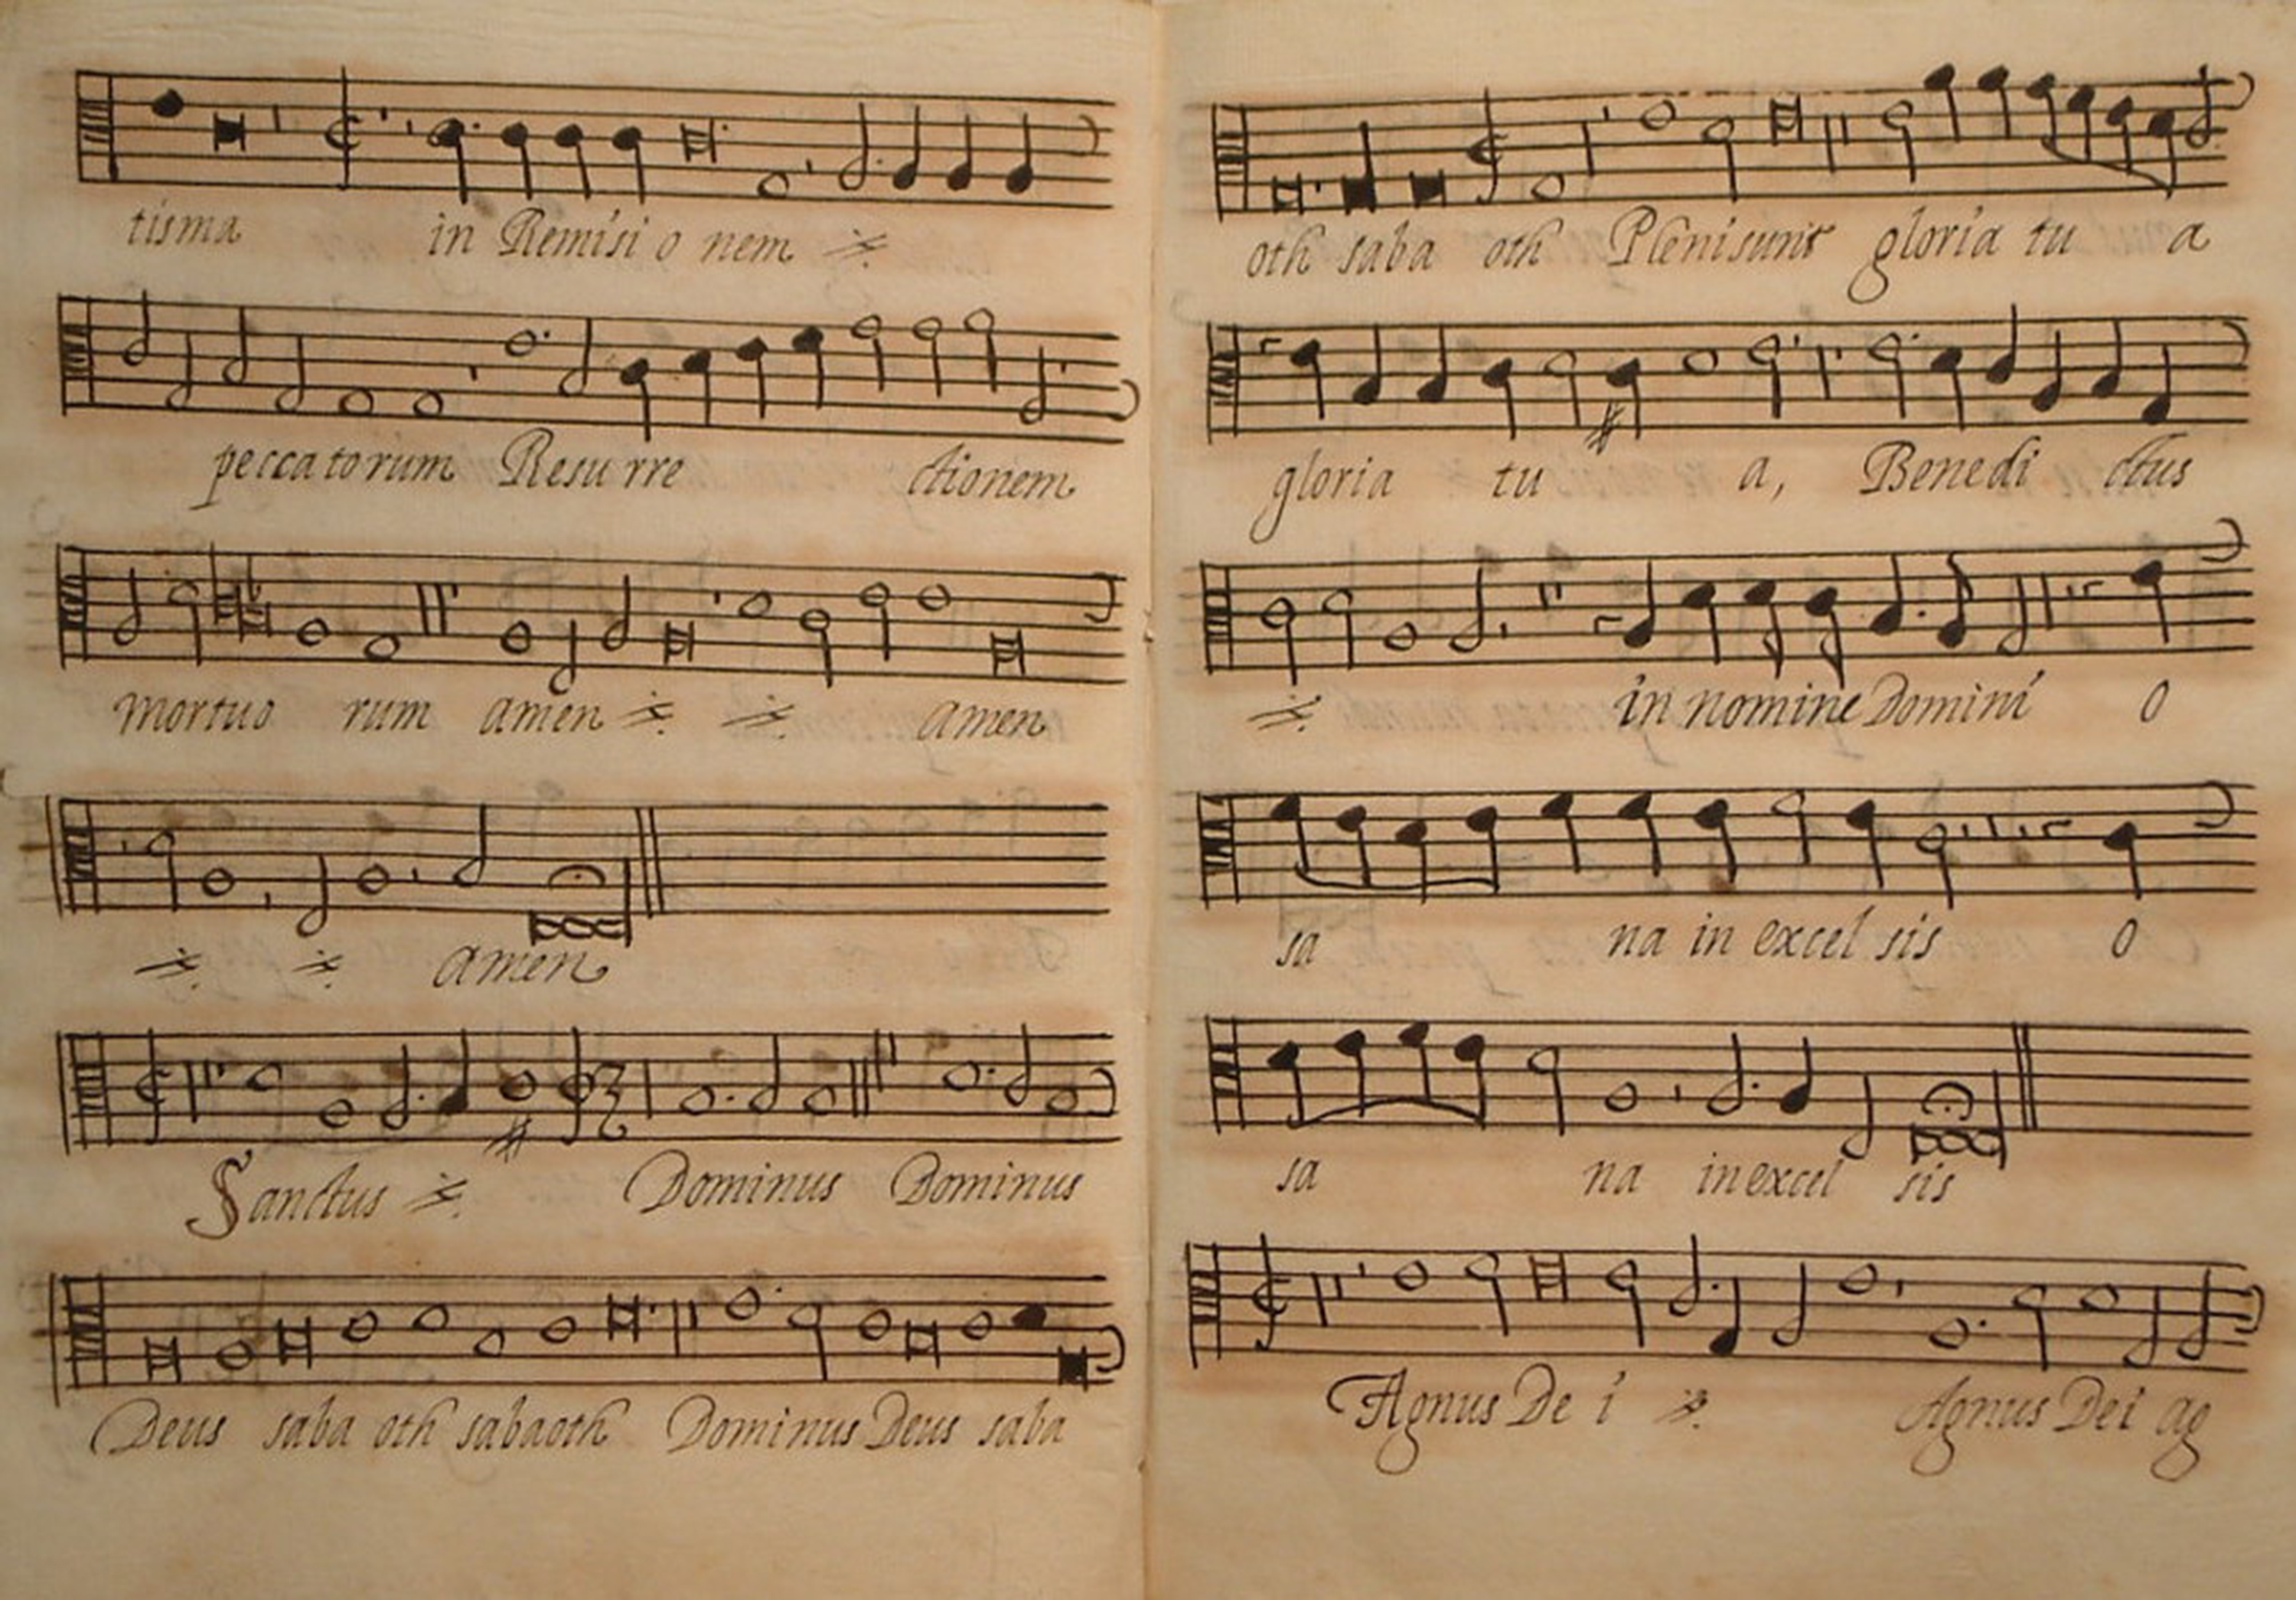 tisma in Remisi o nem
peccatorum Resu rre ctionem
mortuo rum amen amen
amen
Sanctus Dominus Dominus
Deus saba oth sabaoth Dominus Deus saba
oth saba oth Plenisunt gloria tu a
gloria tu a, Benedi ctus
in nomine Domini O
sa na in excel sis O
sa na in excel sis
Agnus De i Agnus Dei ag